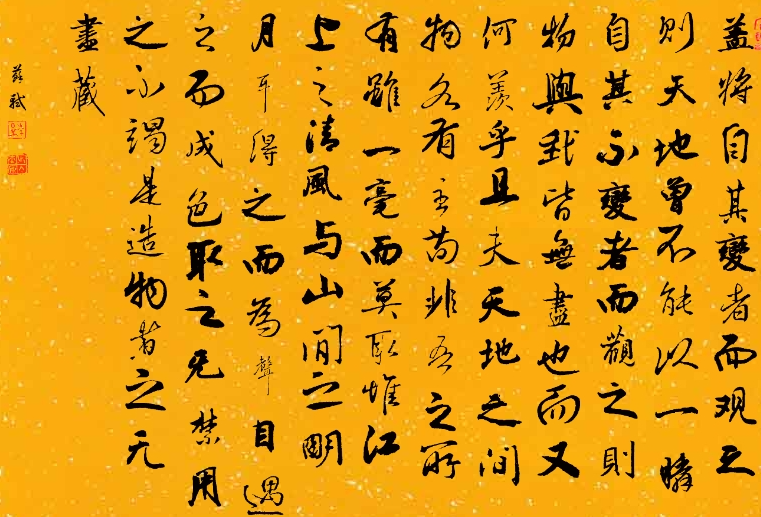 盖将自其變者而观之
则天地曾不能以一瞬
自其不變者而觀之則
物與我皆無盡也而又
何羨乎且夫天地之间
物各有主苟非吾之所
有雖一毫而莫取惟江
上之清風与山间之明
月耳得之而為聲目遇
之而成色取之无禁用
之不竭是造物者之无
盡藏
蘇軾